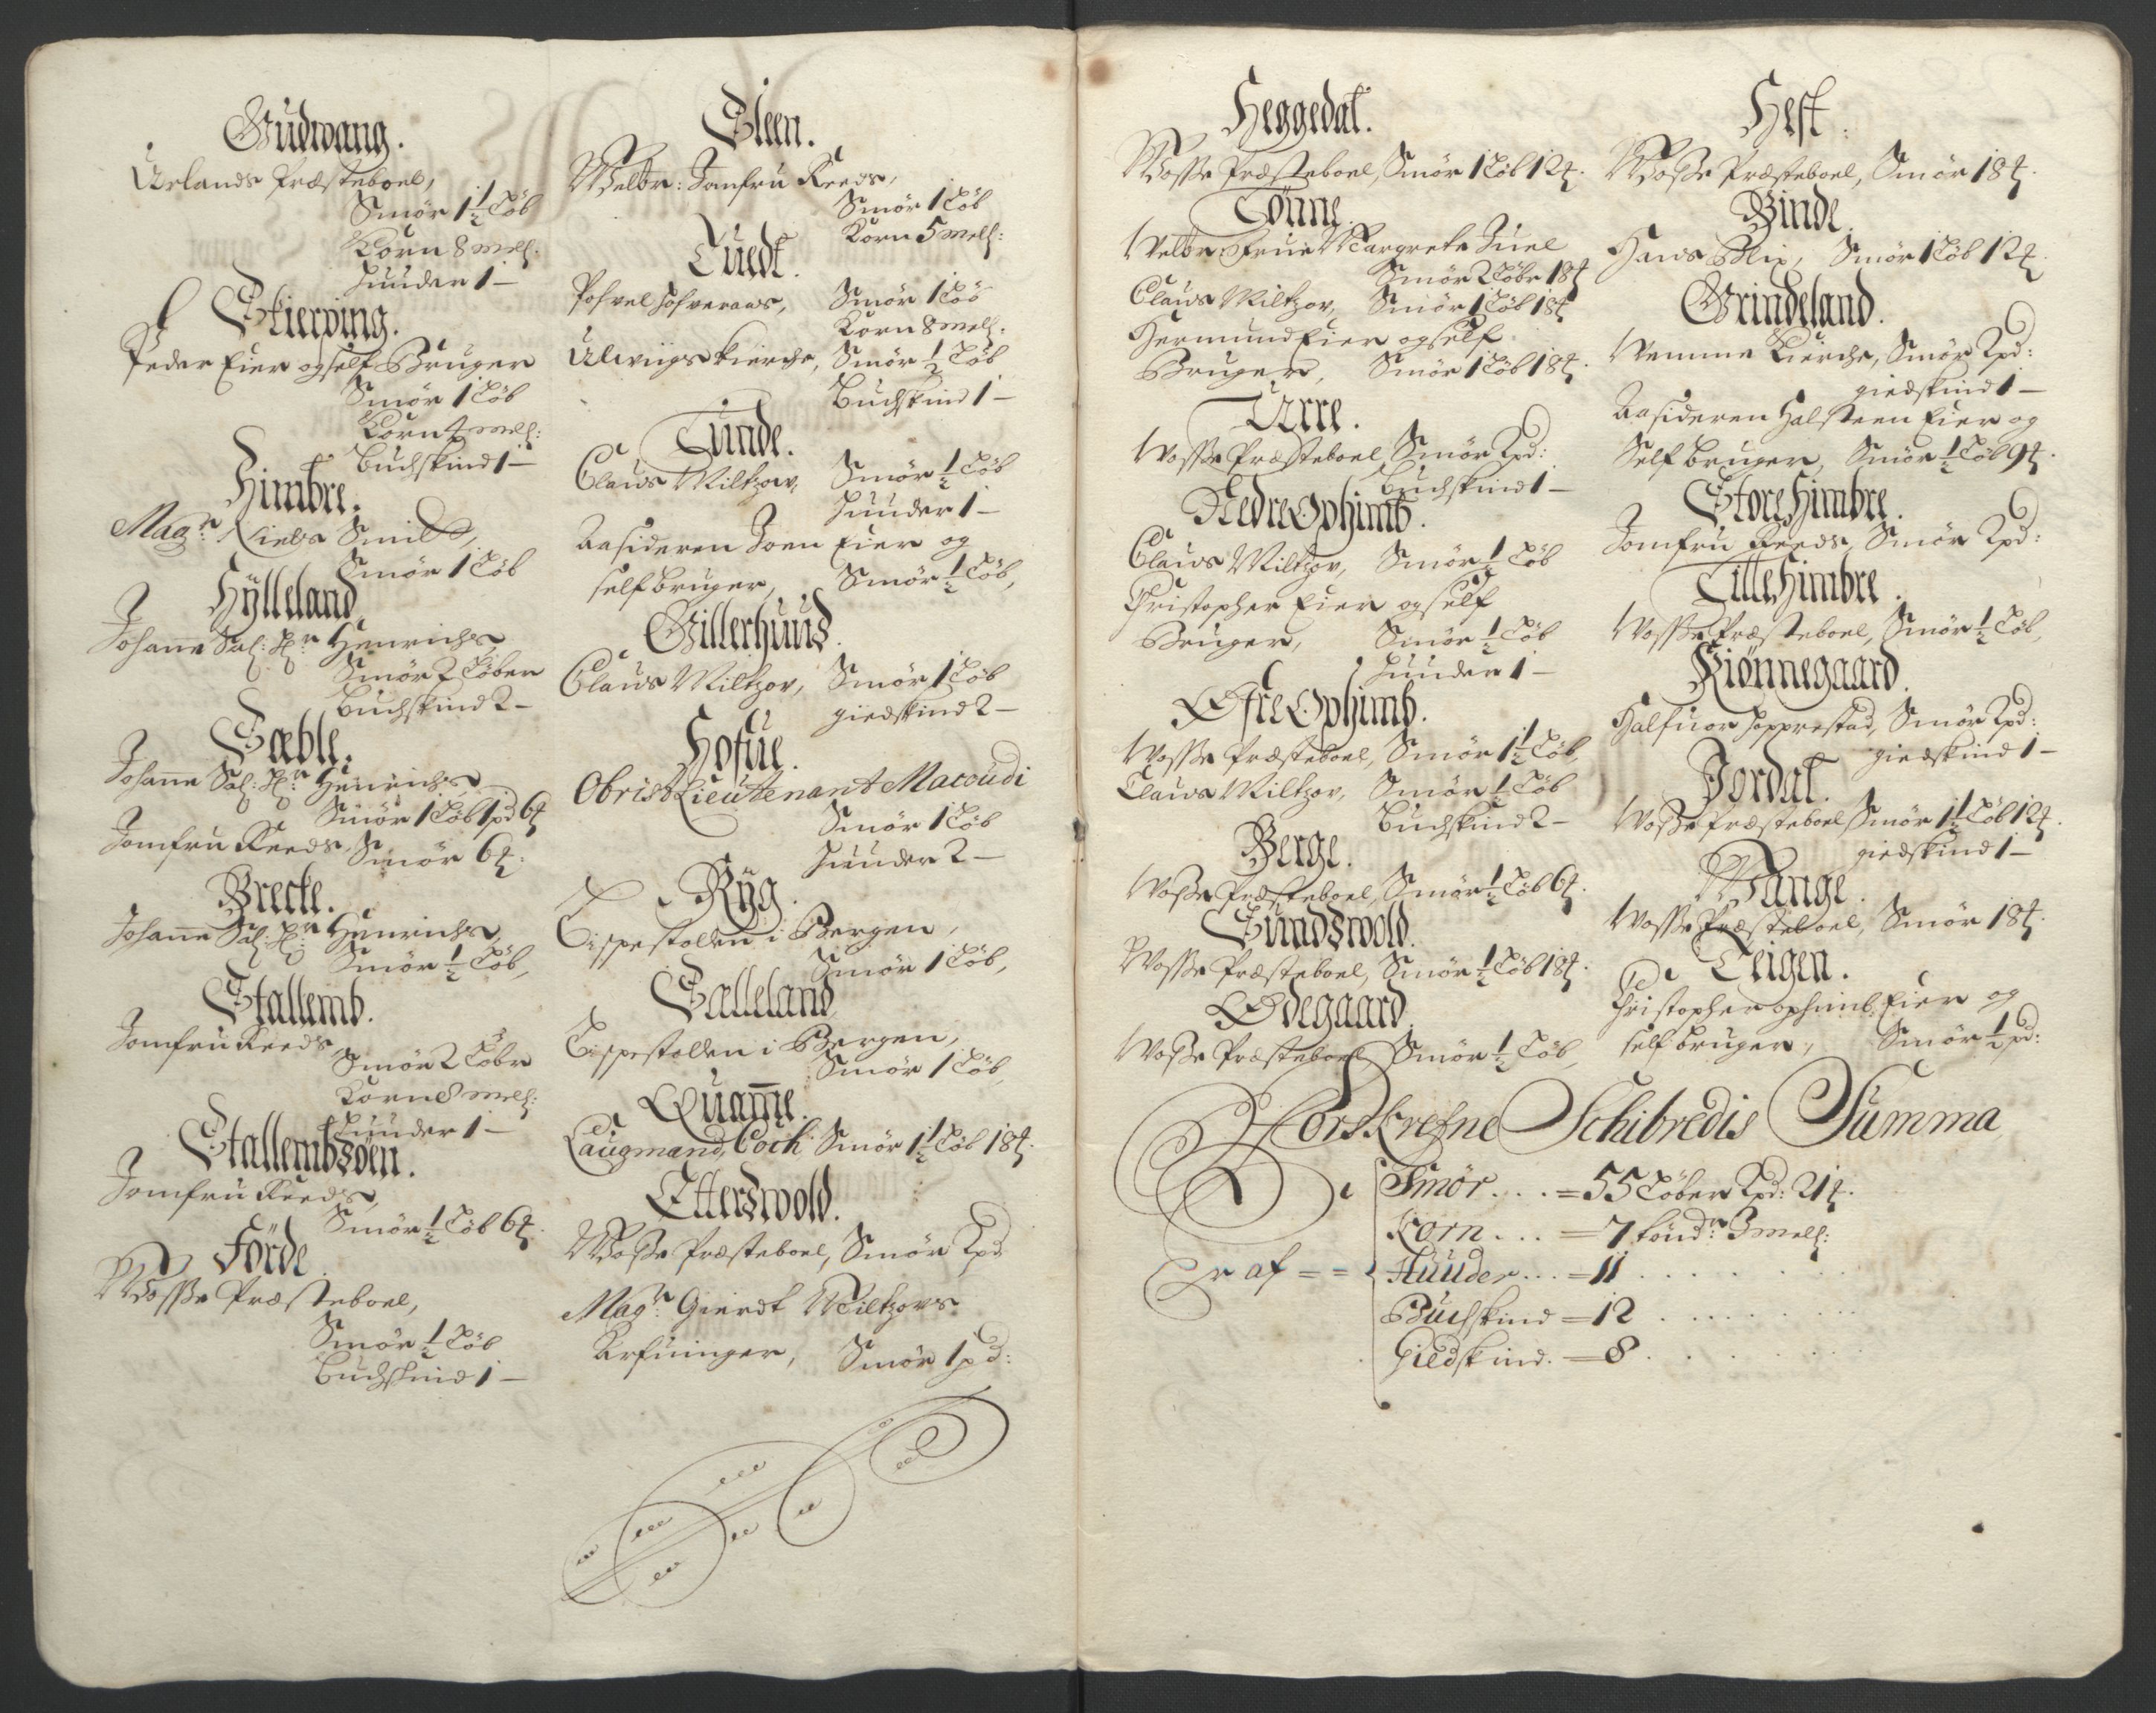 Gudwang.
Urlands Præsteboel,
Smör 1½ Löb
Korn 8 melß:
Huuder 1 –
Skierping.
Peder Eier og self Bruger
Smör 1 Löb
Korn 4 melß:
Buchskind 1 –
Himbre.
Magr. Niels Smild,
Smör 1 Löb
Hylleland
Johane Sal: Hr. Henrichs,
Smör 2 Löber
Buchskind 2 –
Sæble.
Johane Sal: Hr. Henrichs
Smör 1 Löb 1 pd 6 ꝶ
Jomfru Reeds, Smör 6 ꝶ:
Brecke.
Johane Sal: Hr. Henrichs,
Smör ½ Löb,
Stallemb.
Jomfru Reeds,
Smör 2 Löbr
Korn 8 melß:
Huuder 1 –
Stallembsöen.
Jomfru Reeds,
Smör ½ Löb 6 ꝶ.
Förde.
Wosse Præsteboel,
Smör ½ Löb
Buchskind 1 –
Steen.
Welbr: Jomfru Reeds,
Smör 1 Löb
Korn 5 melß:
Tuedt.
Pofvel Hofverans, Smör 1 Löb
Korn 8 melß.
Ulwiigs Kierche, Smör ½ Löb
Buchskind 1 –
Tunde.
Claus Miltzow, Smör ½ Löb
Huuder 1 –
Aasideren Joen Eier og
self bruger, Smör ½ Löb,
Gillerhuus.
Claus Miltzov, Smör 1 Löb
giedskind 2 –
Hofue.
Obrist Lieutenant Macoudi
Smör 1 Löb
Huuder 2 –
Ryg.
Bispestolen i Bergen,
Smör 1 Löb,
Sælleland
Bispestolen i Bergen,
Smör 1 Löb,
Quame.
Laugmand Coch Smör 1½ Löb 18 ꝶ.
Etterswold.
Wosse Præsteboel, Smör 2 pd
Magr. Gierdt Miltzovs
Arfuinger, Smör 1 pd:
Heggedal.
Wosse Præsteboel, Smör 1 Löb 12 ꝶ.
Tönne.
Welbr Frue Margrete Juel
Smör 2 Löbr 18 ꝶ
Claus Miltzov, Smör 1 Löb 18 ꝶ
Hermund Eier og self
Bruger, Smör 1 Löb 18 ꝶ.
Urre.
Wosse Præsteboel Smör 2 pd:
Buchskind 1 –
Nedre Ophimb.
Claus Miltzov, Smör ½ Löb
Christopher Eier og self
Bruger, Smör ½ Löb
Huuder 1 –
Öfre Ophimb.
Wosse Præsteboel, Smör 1½ Löb,
Claus Miltzov, Smör ½ Löb
Buchskind 2 –
Berge.
Wosse Præsteboel, Smör ½ Löb 6 ꝶ.
Sundswold.
Wosse Præsteboel, Smör ½ Löb 18 ꝶ.
Ödegaard.
Wosse Præsteboel Smör ½ Löb,
Heft.
Wosse Præsteboel, Smör 18 ꝶ.
Binde.
Hans Blix, Smör 1 Löb 12 ꝶ.
Grindeland.
Wemme Kierche, Smör 2 pd:
giedskind 1 –
Aasideren Halsteen Eier og
Self bruger, Smör ½ Löb 9 ꝶ.
Store Himbre.
Jomfru Reeds, Smör 2 pd:
Lille Himbre.
Wosse Præsteboel, Smör ½ Löb,
Kiönnegaard.
Halfuor Hopprestad, Smör 2 pd:
giedskind 1 –
Jordal.
Wosse Præsteboel Smör 1½ Löb 12 ꝶ.
giedskind 1 –
Wange.
Wosse Præsteboel, Smör 18 ꝶ.
Teigen.
Christopher ophimb: Eier og
self bruger, Smör ½ pd:
Forskrefne Schibredis Summa
Smör.... = 55 Löber 2 pd: 21 ꝶ.
Korn... = 7 töndr 3 melß:
Er af = = Huuder... = 11
Buchskind = 12
Giedskind. = 8